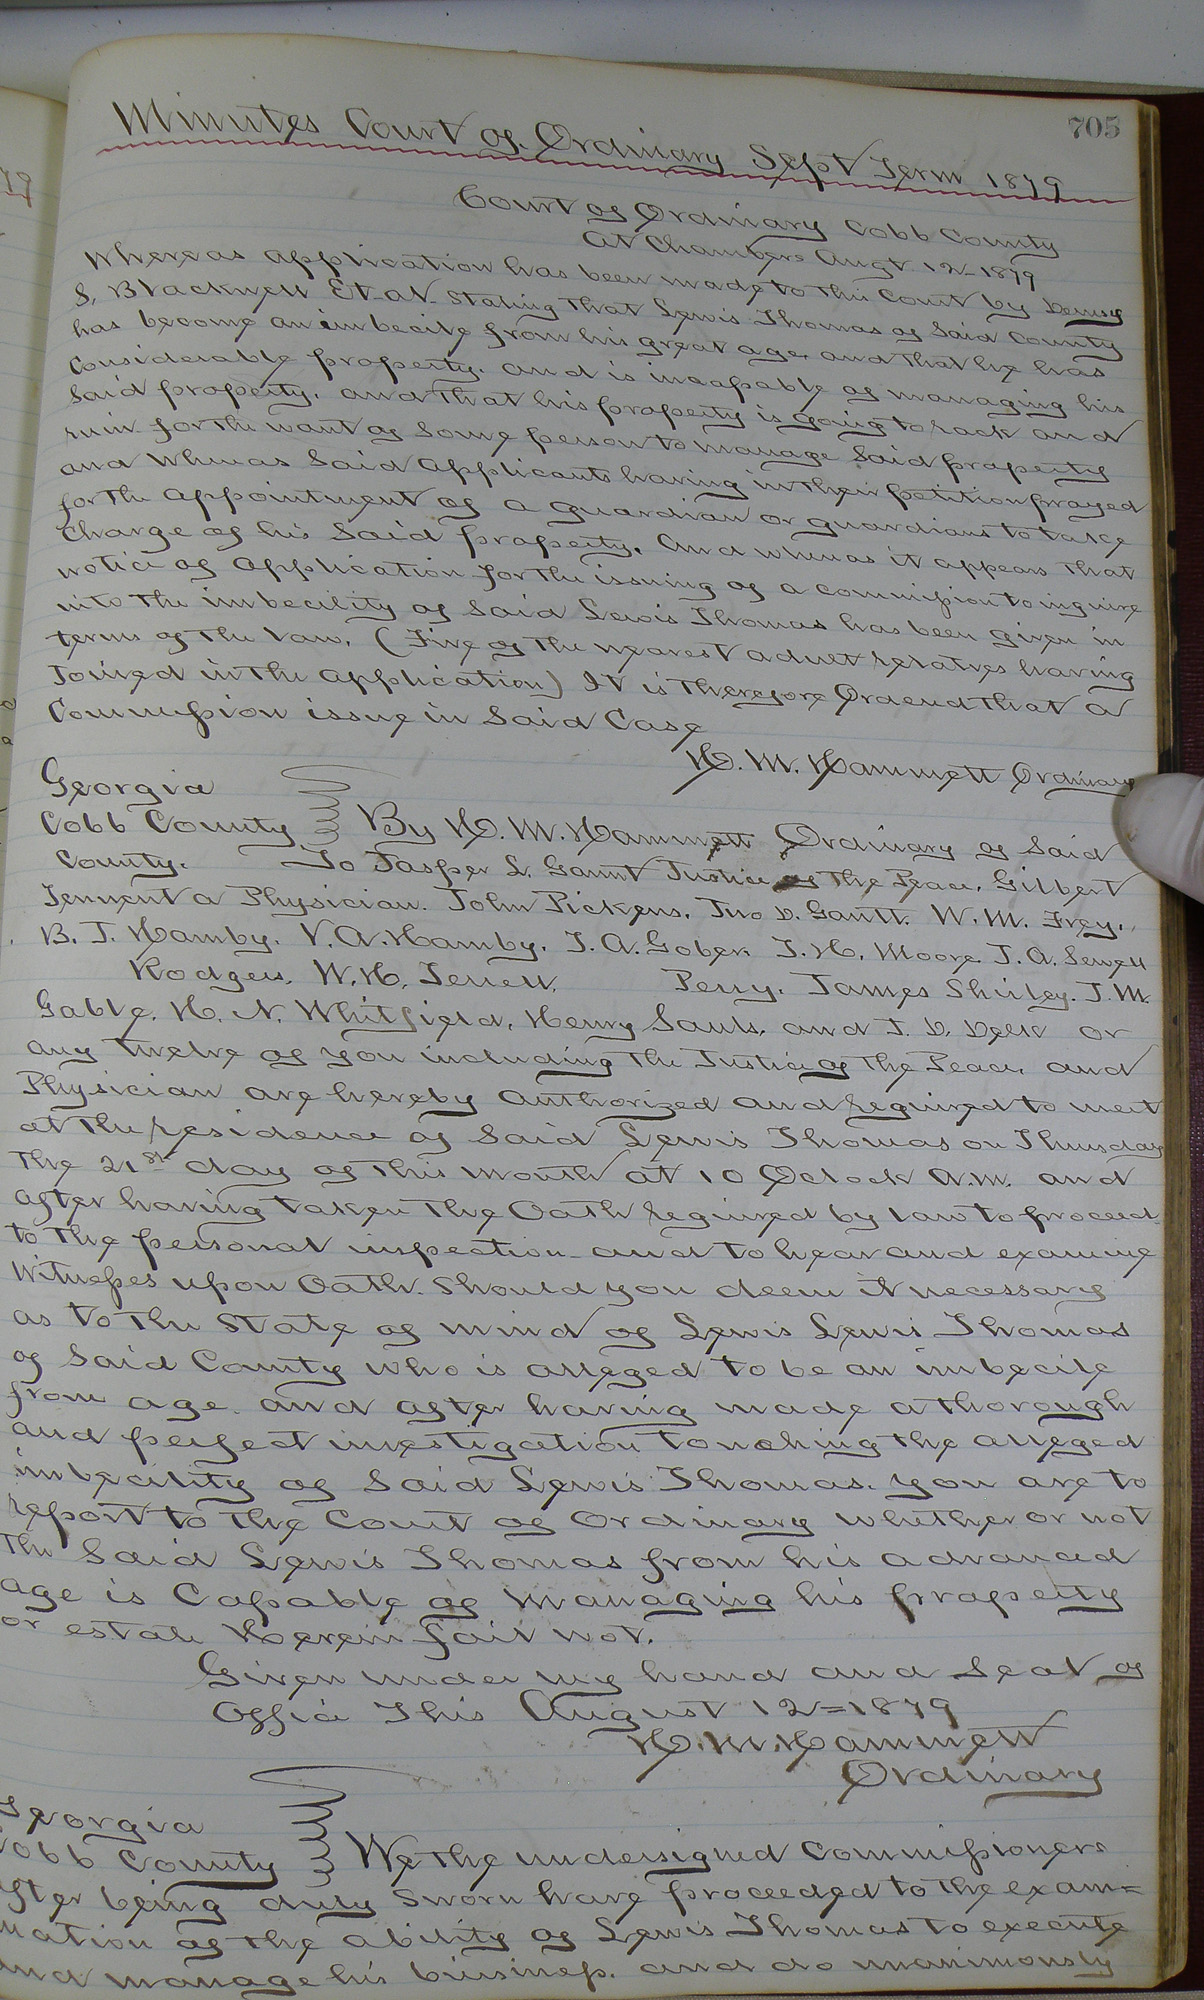 705
Minutes Court of Ordinary Sept Term 1879
Court of Ordinary Cobb County
At Chambers Augt 12-1879
Whereas application has been made to this Court by Dempsy
S. Blackwell Et-al- stating that Lewis Thomas of Said County
has become an imbecile from his great age, and that he has
Considerable property. and is incapable of managing his
Said property, and that his property is going to rack and
ruin for the want of some person to manage Said property
and Whereas Said applicants having in their petition prayed
for the appointment of a guardian or guardians to take
Charge of his Said property. And whereas it appears that
notice of application for the issuing of a commission to inquire
into the imbecility of Said Lewis Thomas has been given in
terms of the law. (Five of the nearest adult relatives having
Joined in the application) It is therefore Ordered that a
Commission issue in Said Case
H. M. Hammett Ordinary
Georgia
Cobb County By H. M. Hammett Ordinary of Said
County. To Jasper L. Gannt Justice of the Peace, Gilbert
Tennent a Physician. John Pickens, Jno D. Gantt. W. M. Frey.
B. T. Hamby. V. A. Hamby. J. A. Gober. J. H. Moore. J. A. Sewell
Rodgers. W. H. Terrell. Perry. James Shirley. J. M.
Gable. H. N. Whitfield, Henry Sauls. and J. D. Delk or
any twelve of you including the Justice of the Peace, and
Physician are hereby authorized and required to meet
at the residence of Said Lewis Thomas on Thursday
the 21st day of this month at 10 Oclock A.M. and
after having taken the Oath required by law to proceed
to the personal inspection and to hear and examine
Witnesses upon Oath should you deem it necessary
as to the state of mind of Lewis Lewis Thomas
of Said County who is alleged to be an imbecile
from age. and after having made a thorough
and perfect investigation touching the alleged
imbecility of Said Lewis Thomas. you are to
report to the Court of Ordinary whether or not
the Said Lewis Thomas from his advanced
age is Capable of Managing his proaperty
or estate Herein fail not.
Given under my hand and Seal of
Office This August 12=1879
H. M. Hammett
Ordinary
Georgia
Cobb County We the undersigned Commissioners
after being duly Sworn have proceeded to the exam=
ination of the ability of Lewis Thomas to execute
and manage his business. and do unanimously